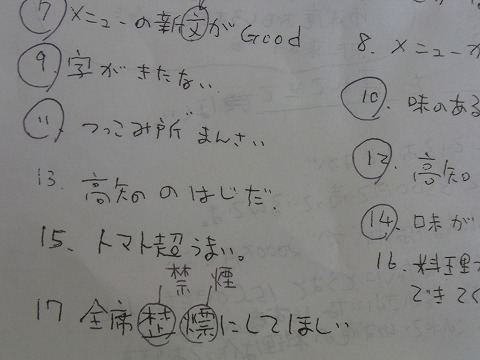 ⑦ メニューの新文がGood
⑨ 字がきたない.
⑪ つっこみ所まんさい
13. 高知のはじだ.
15. トマト超うまい。
禁 煙
17 全席 にしてほしい
8. メニューが
⑩ 味のある
⑫ 高知
⑭ 味が
16. 料理
できてく